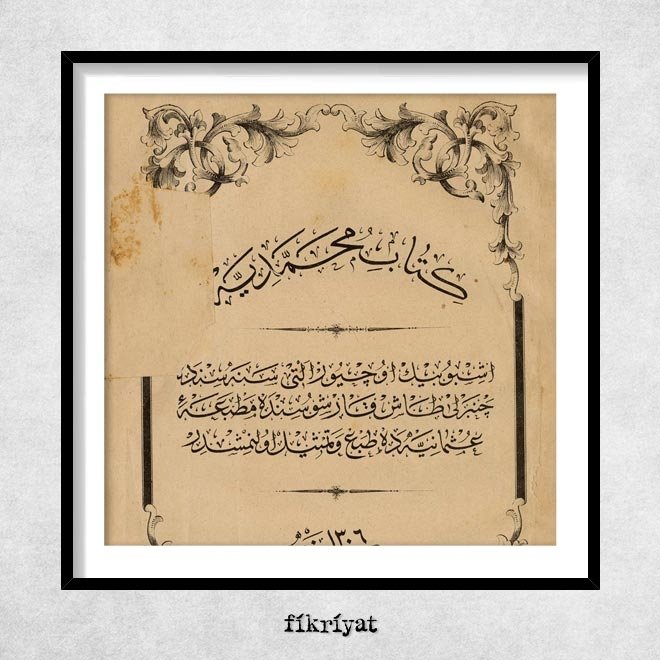 كِتَابِ مُحَمَّدِيَّه
اشبو بيك اوچيوز التى سنه سنده
چنبرلى طاش قارشوسنده مطبعهٔ
عثمانيه ده طبع و تمثيل اولنمشدر
١٣٠٦
fikriyat